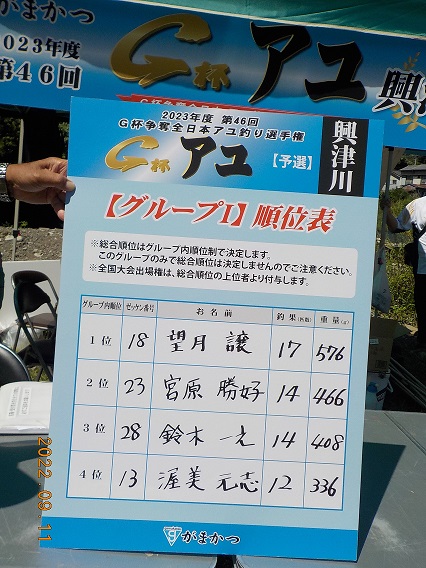 がまかつ
2023年度
第46回
G杯 アユ
興
2023年度 第46回
G杯争奪全日本アユ釣り選手権
G杯 アユ 【予選】
興津川
【グループI】順位表
※総合順位はグループ内順位制で決定します。
このグループのみで総合順位は決定しませんのでご注意ください。
※全国大会出場権は、総合順位の上位者より付与します。
グループ内順位 ゼッケン番号 お名前 釣果(匹数) 重量(g)
1位 18 望月 譲 17 576
2位 23 宮原 勝好 14 466
3位 28 鈴木 14 408
4位 13 渥美 元志 12 336
がまかつ
2022 09 11